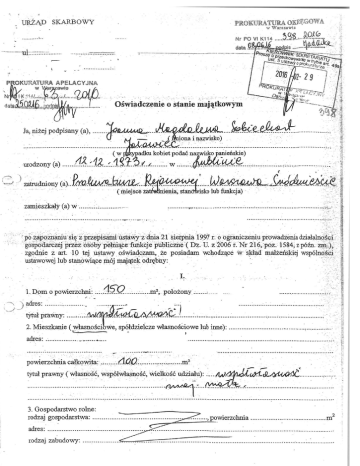 URZĄD SKARBOWY
PROKURATURA OKRĘGOWA
w Warszawie
ul
PROKURATURA APELACYJNA
w Warszawie
Oświadczenie o stanie majątkowym
Ja, niżej podpisany (a), Joanna Magdalena
(imiona i nazwisko)
(w przypadku kobiet podać nazwisko panieńskie)
urodzony (a) 12.12.1973 w Lublinie
zatrudniony (a) Prokuratura Rejonowa Warszawa Śródmieście
( miejsce zatrudnienia, stanowisko lub funkcja)
zamieszkały (a) w
po zapoznaniu się z przepisami ustawy z dnia 21 sierpnia 1997 r. o ograniczeniu prowadzenia działalności
gospodarczej przez osoby pełniące funkcje publiczne ( Dz. U. z 2006 r. Nr 216, poz. 1584, z późn. zm.),
zgodnie z art. 10 tej ustawy oświadczam, że posiadam wchodzące w skład małżeńskiej wspólności
ustawowej lub stanowiące mój majątek odrębny:
I.
1. Dom o powierzchni: 150 m², położony
adres:
tytuł prawny: współwłasność
2. Mieszkanie ( własnościowe, spółdzielcze własnościowe lub inne):
adres:
powierzchnia całkowita: 100 m²
tytuł prawny ( własność, współwłasność, wielkość udziału): współwłasność
maj.
3. Gospodarstwo rolne:
rodzaj gospodarstwa: , powierzchnia m²
adres:
rodzaj zabudowy: